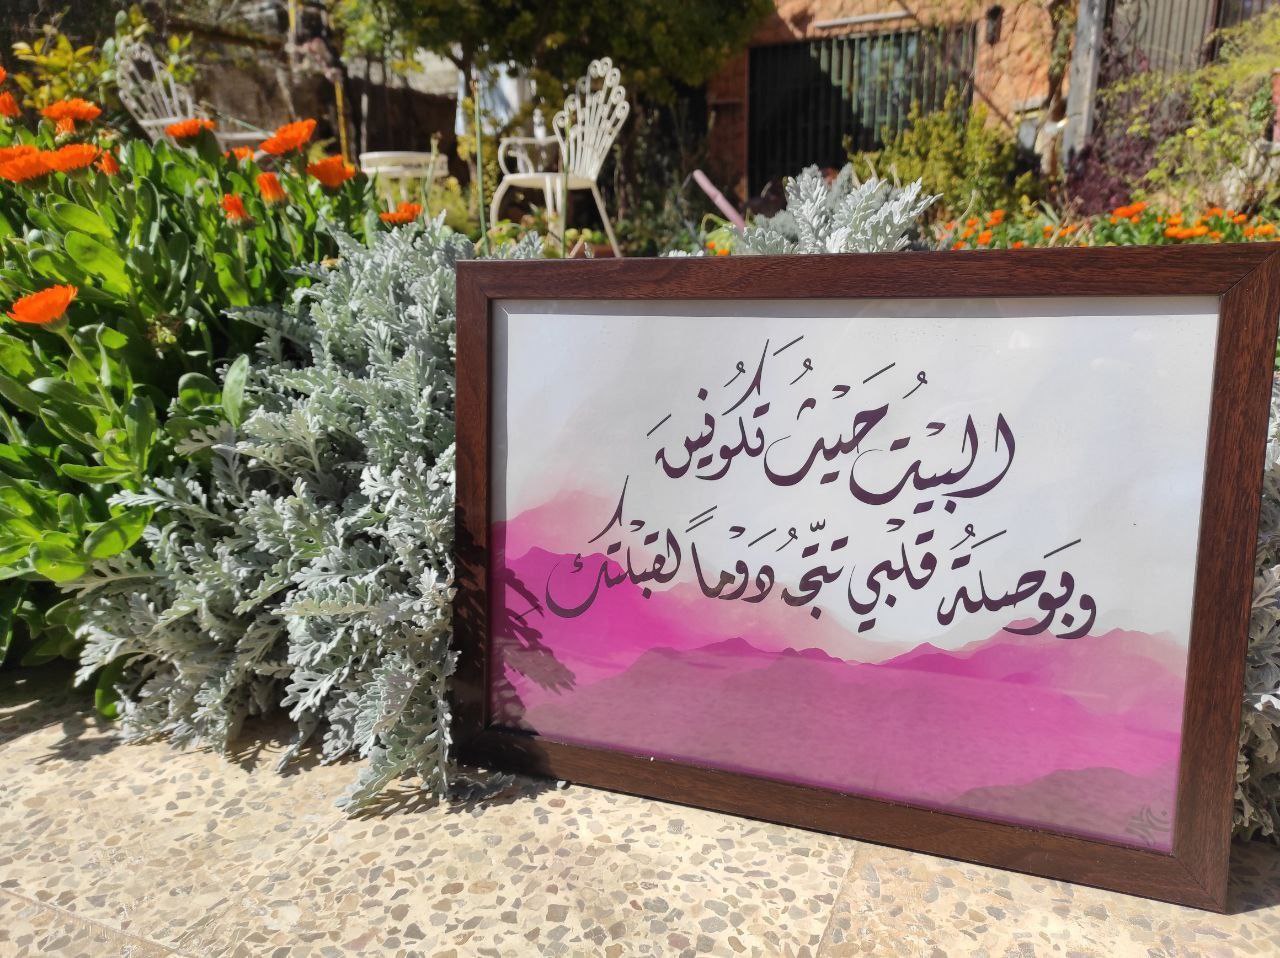 البَيْتُ حَيْثُ تَكُونِينَ
وبَوصَلَةُ قَلْبِي تتّجهُ دَوْماً لقِبْلَتِك